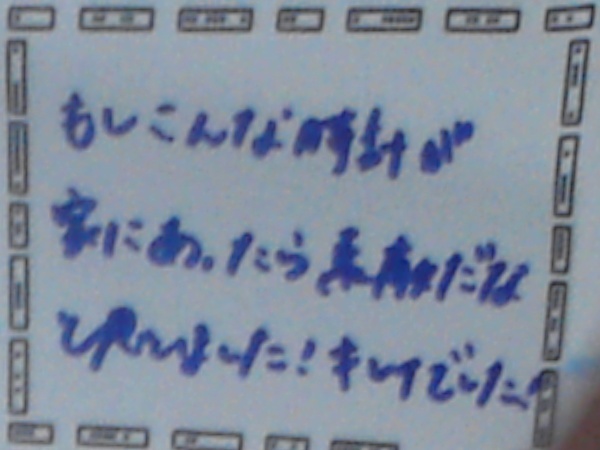 もしこんな時計が
家にあったら素敵だな
と思いました！キレイでした